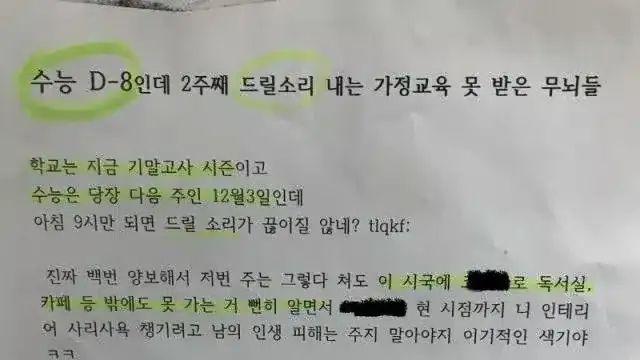 수능 D-8인데 2주째 드릴소리 내는 가정교육 못 받은 무뇌들
학교는 지금 기말고사 시즌이고
수능은 당장 다음 주인 12월3일인데
아침 9시만 되면 드릴 소리가 끊어질 않네? tlqkf:
진짜 백번 양보해서 저번 주는 그렇다 쳐도 이 시국에 로 독서실,
카페 등 밖에도 못 가는 거 뻔히 알면서 현 시점까지 니 인테리
어 사리사욕 챙기려고 남의 인생 피해는 주지 말아야지 이기적인 색기야
ㅋㅋ